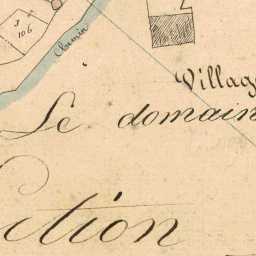 3
106
Chemin
2
Village
Le domain
ction